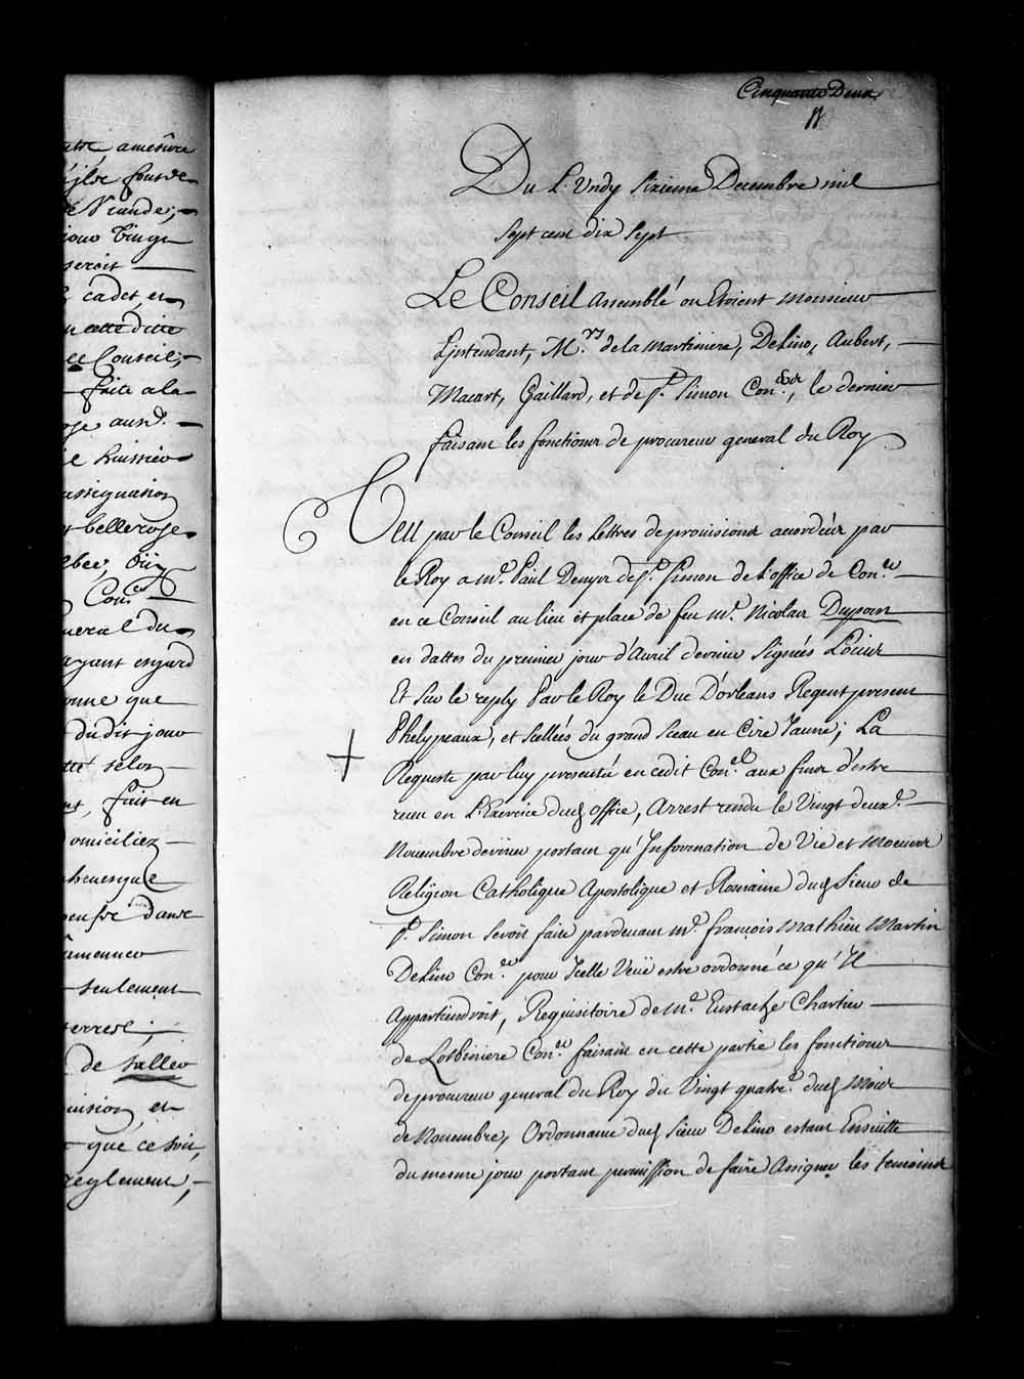 atre, amesure
Viande;
jour Vingt
seroit
cadet et
en cette ditte
Conseil,
faite a la
ausd.
huissier
assignation
bellerose
Con.er
neral du
ayant esgard
onne que
du dit jour
selon
fait en
domiciliez
danse
seulement
terrest;
de Salleo
uision, et
que ce soit,
reglement,
Cinquante Deux
Du L'undy Sixieme Decembre mil
Sept cent dix Sept
Le Conseil assemblé ou Etoient Monsieur
L'jntendant, M.rs de la Martiniere, DeLino, Aubert,
Macart, Gaillard, et de S.t Simon Con.ers, le dernier
faisant les fonctions de procureur general du Roy
Veu par le Conseil les Lettres de prouisions acordéés par
le Roy a m.e Paul Denys de S.t Simon de L'office de Con.er
en ce Conseil au lieu et place de feu m.e Nicolas Dupont
en dattes du premier jour d'Avril dernier Signéés Loüis
Et Sur le reply Par le Roy le Duc D'orleans Regent present
Phelypeaux, et Scelléés du grand Sceau en Cire Jaune; La
Requeste par luy presentéé en cedit Con.el aux fins d'estre
receu en L'Exercice dud. office, Arrest rendu le Vingt deux.e
Nouembre dernier portant qu'Jnformation de Vie et Moeurs
Religion Catholique Apostolique et Romaine dud. Sieur de
S.t Simon Seroit faite pardeuant m.e françois Mathieu Martin
DeLino Con.er pour Jcelle Veüe estre ordonné ce qu'Jl
Appartiendroit, Requisitoire de m.e Eustache Chartier
de Lotbiniere Con.er faisant en cette partie les fonctions
de procureur general du Roy du Vingt quatre.e dud. Mois
de Nouembre, Ordonnance dud. Sieur DeLino estant Ensuitte
du mesme jour portant permission de faire Assigner les temoins